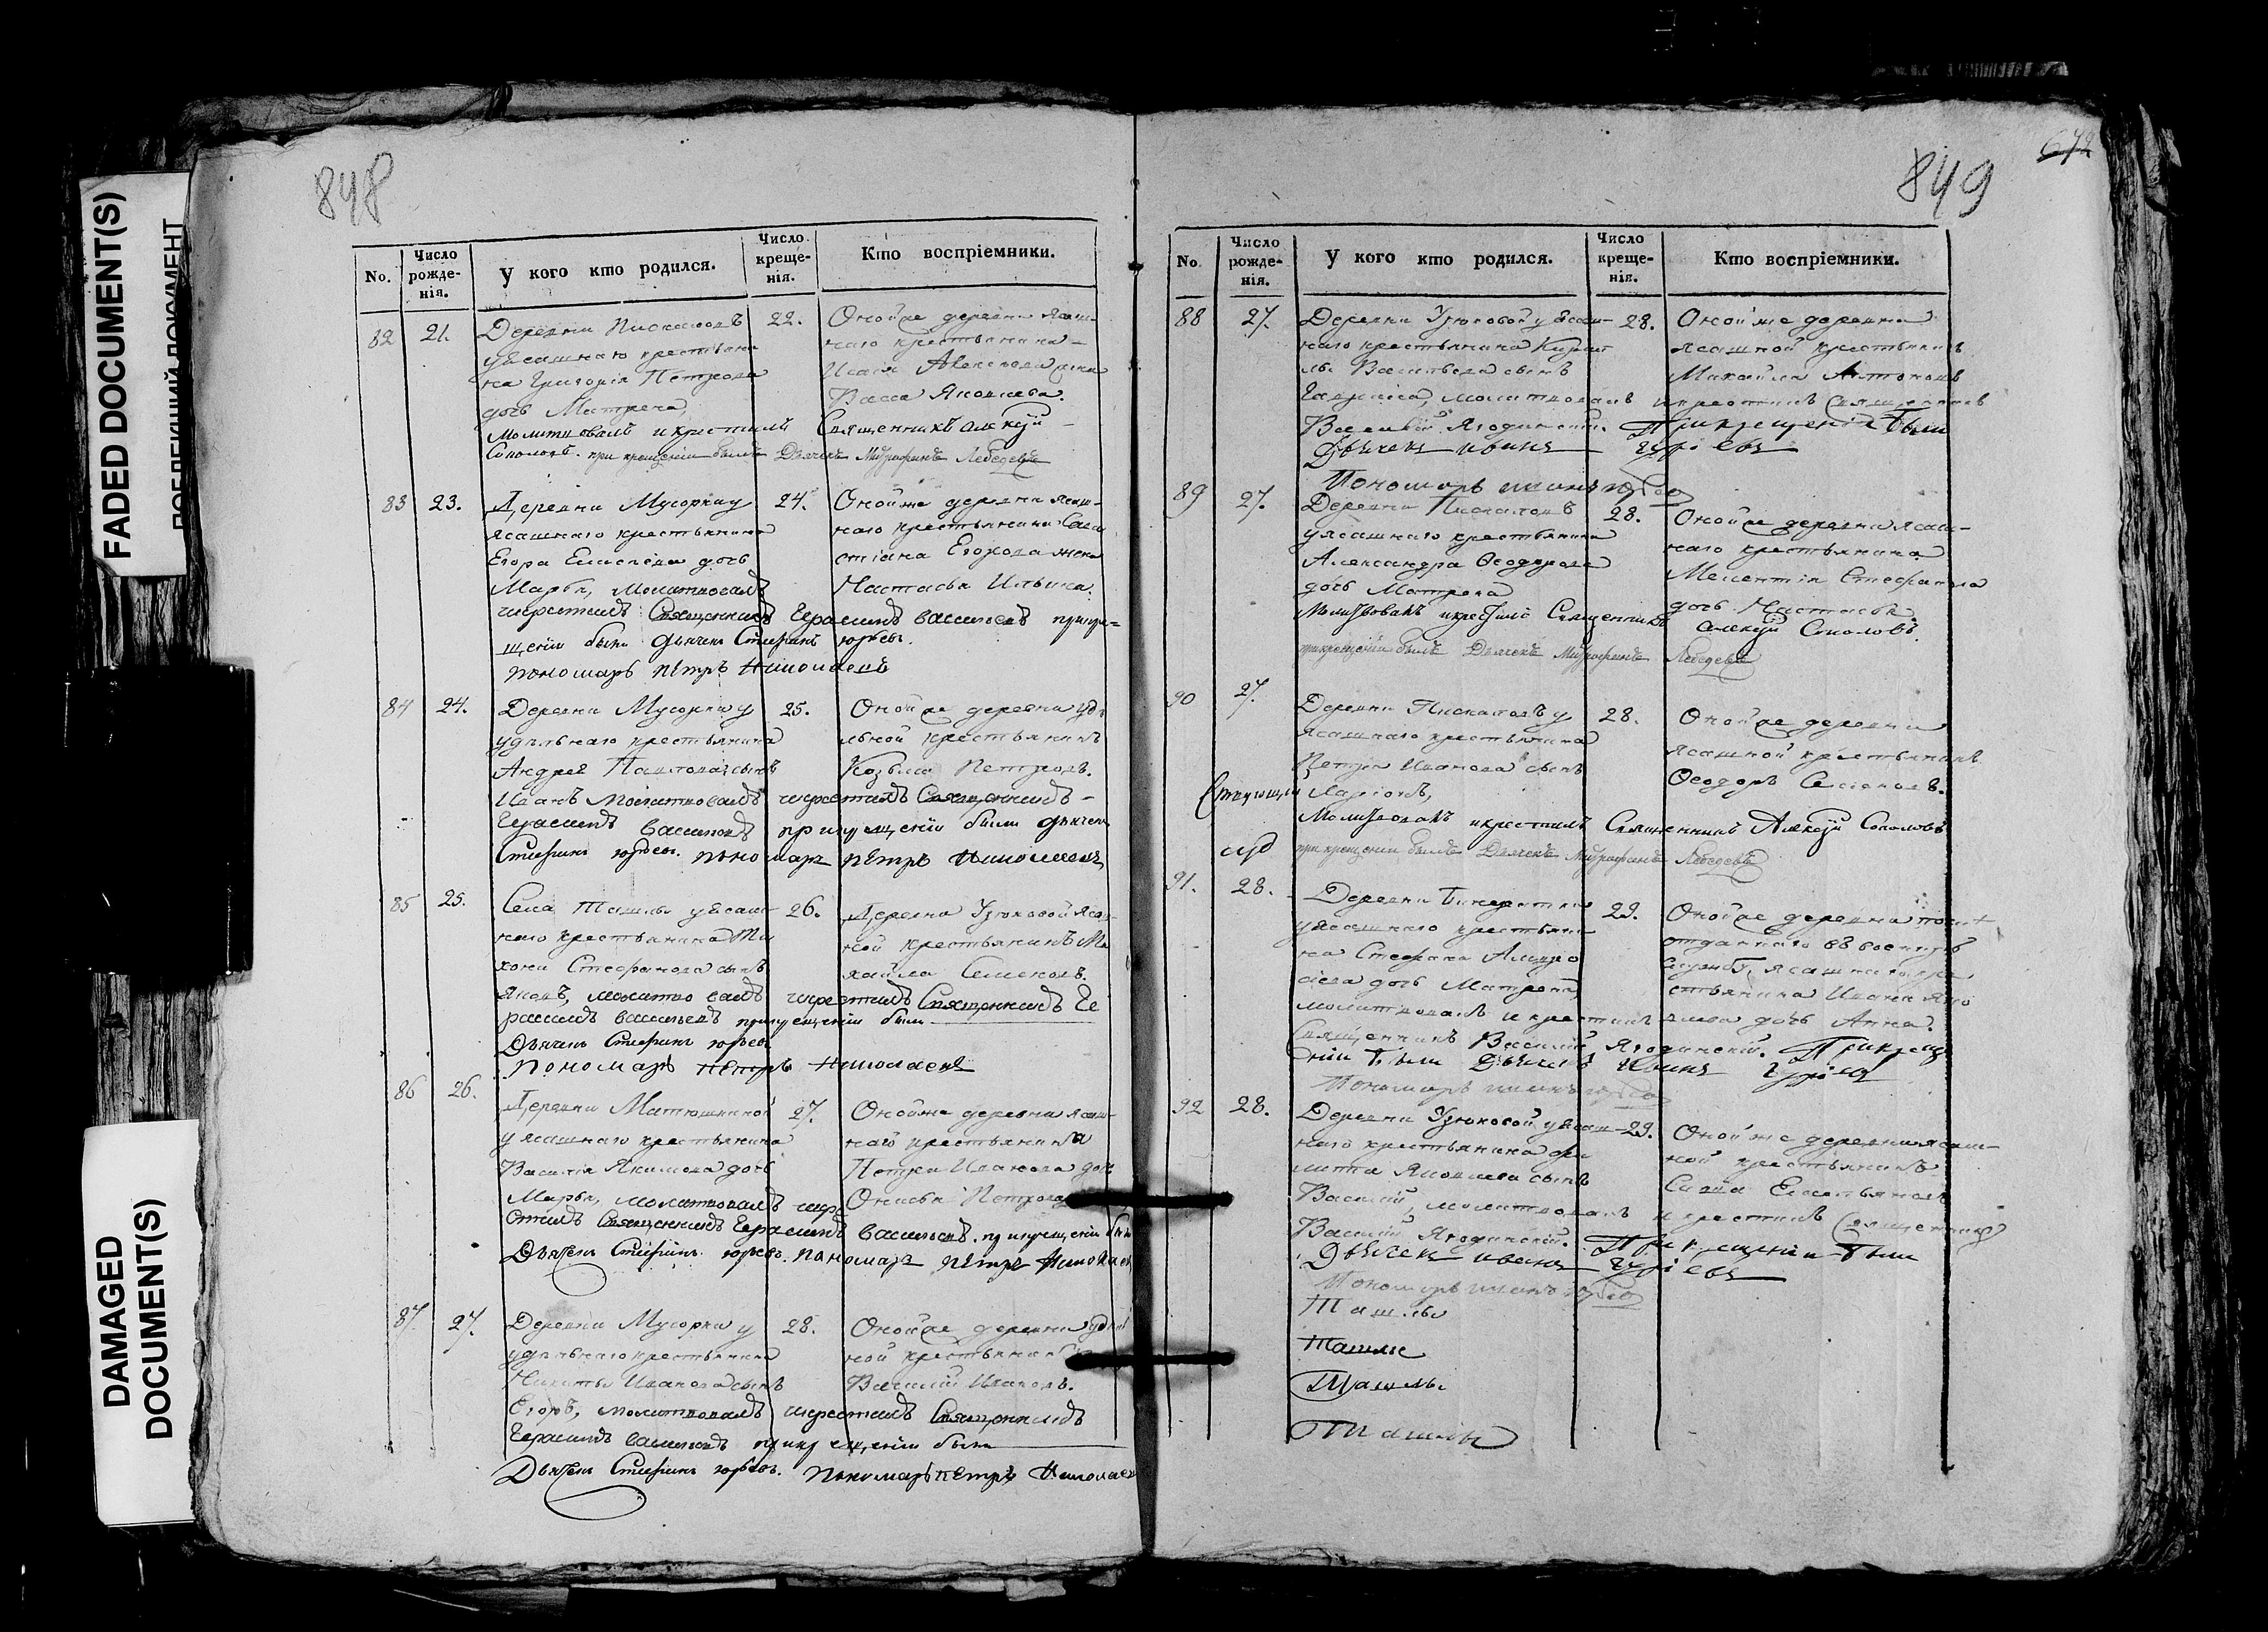 FADED DOCUMENT(S)
DAMAGED
DOCUMENT(S)
848
No.
Число рожденія.
У кого кто родился.
Число крещенія.
Кто воспріемники.
82
21.
Деревни
уясашнаго крестьяни
на Григорія Петрова
дочь Матрена,
молитвовалъ и крестилъ Священникъ Алексѣй
Соколовъ. при крещеніи былъ Дьячекъ Митрофанъ Лебедевъ
22.
Оной же деревни ясаш-
наго крестьянина
Исаія Алексѣева жена
Васса Яковлева.
83
23.
Деревни Мусорки у
ясашнаго крестьянина
Егора дочь
Марья, молитвовалъ
икрестилъ Священникъ Герасимъ Васильевъ прикре-
щеніи были дьячекъ Стефанъ Юрьевъ.
пономарь Петръ Николаевъ
24.
Оной же деревни ясаш-
наго крестьянина
Егорова жена
Настасья Ильина.
84
24.
Деревни Мусорки у
удѣльнаго крестьянина
Андрея Павлова сынъ
Иванъ молитвовалъ икрестилъ Священникъ
Герасимъ Васильевъ прикрещеніи были дьячекъ
Стефанъ Юрьевъ. пономарь Петръ Николаевъ
25.
Оной же деревни удѣ
льной крестьянинъ
Козьма Петровъ.
85
25.
Села Ташлы уясаш-
наго крестьянина Ти
хона Стефанова сынъ
Яковъ, молитвовалъ икрестилъ Священникъ Ге
расимъ Васильевъ прикрещеніи были
Дьячекъ Стефанъ Юрьевъ
Пономарь Петръ Николаевъ
26.
Деревни Узюковой ясаш-
ной крестьянинъ Ми
хайла Семеновъ.
86
26.
Деревни Матюшкиной
уясашнаго крестьянина
Василія Якимова дочь
Марья, молитвовалъ икре
стилъ Священникъ Герасимъ Васильевъ. прикрещеніи были
Дьячекъ Стефанъ Юрьевъ. пономарь Петръ Николаевъ
27.
Оной же деревни ясаш-
наго крестьянина
Петра Иванова дочь
Онисья Петрова
87
27.
Деревни Мусорки у
удѣльнаго крестьянина
Никиты Иванова сынъ
Егоръ, молитвовалъ икрестилъ Священникъ
Герасимъ Васильевъ прикрещеніи были
Дьячекъ Стефанъ Юрьевъ. Пономарь Петръ Николаевъ
28.
Оной же деревни удѣль
ной крестьянинъ
Василій Ивановъ.
849
No.
Число рожденія.
У кого кто родился.
Число крещенія.
Кто воспріемники.
88
27.
Деревни Узюковой уясаш-
наго крестьянина Кирил
лы Васильева сынъ
молитвовалъ икрестилъ Священникъ
Василій Ягодинскій. При крещеніи были
Дьячекъ Иванъ Гурьевъ
Пономарь
28.
Оной же деревни
ясашной крестьянинъ
Михайла Антоновъ
89
27.
Деревни
уясашнаго крестьянина
Александра Ѳеодорова
дочь Матрена
Молитвовалъ икрестилъ Священникъ Алексѣй Соколовъ.
при крещеніи былъ Дьячекъ Митрофанъ Лебедевъ
28.
Оной же деревни ясаш-
наго крестьянина
Мелентія Стефанова
дочь Настасья
90
27.
Деревни у
ясашнаго крестьянина
Петра Иванова сынъ
Ларіонъ,
Молитвовалъ икрестилъ Священникъ Алексѣй Соколовъ
при крещеніи былъ Дьячекъ Митрофанъ Лебедевъ
28.
Оной же деревни
ясашной крестьянинъ
Ѳеодоръ
91.
28.
Деревни
уясашнаго крестьяни
на Стефана
дочь Матрена,
молитвовалъ и крестилъ
Священникъ Василій Ягодинскій. При креще
ніи были Дьячекъ Иванъ Гурьевъ
Пономарь
29.
Оной же деревни
отданнаго въ военную
службу ясашнаго кре
стьянина Ивана Яко
влева дочь Анна.
92
28.
Деревни Узюковой уясаш-
наго крестьянина
Яковлева сынъ
Василій, молитвовалъ и крестилъ Священникъ
Василій Ягодинскій. При крещеніи были
Дьячекъ Иванъ Гурьевъ
Пономарь
29.
Оной же деревни ясаш-
ной крестьянинъ
Савва
Ташлы
Ташлы
Ташлы
Ташлы